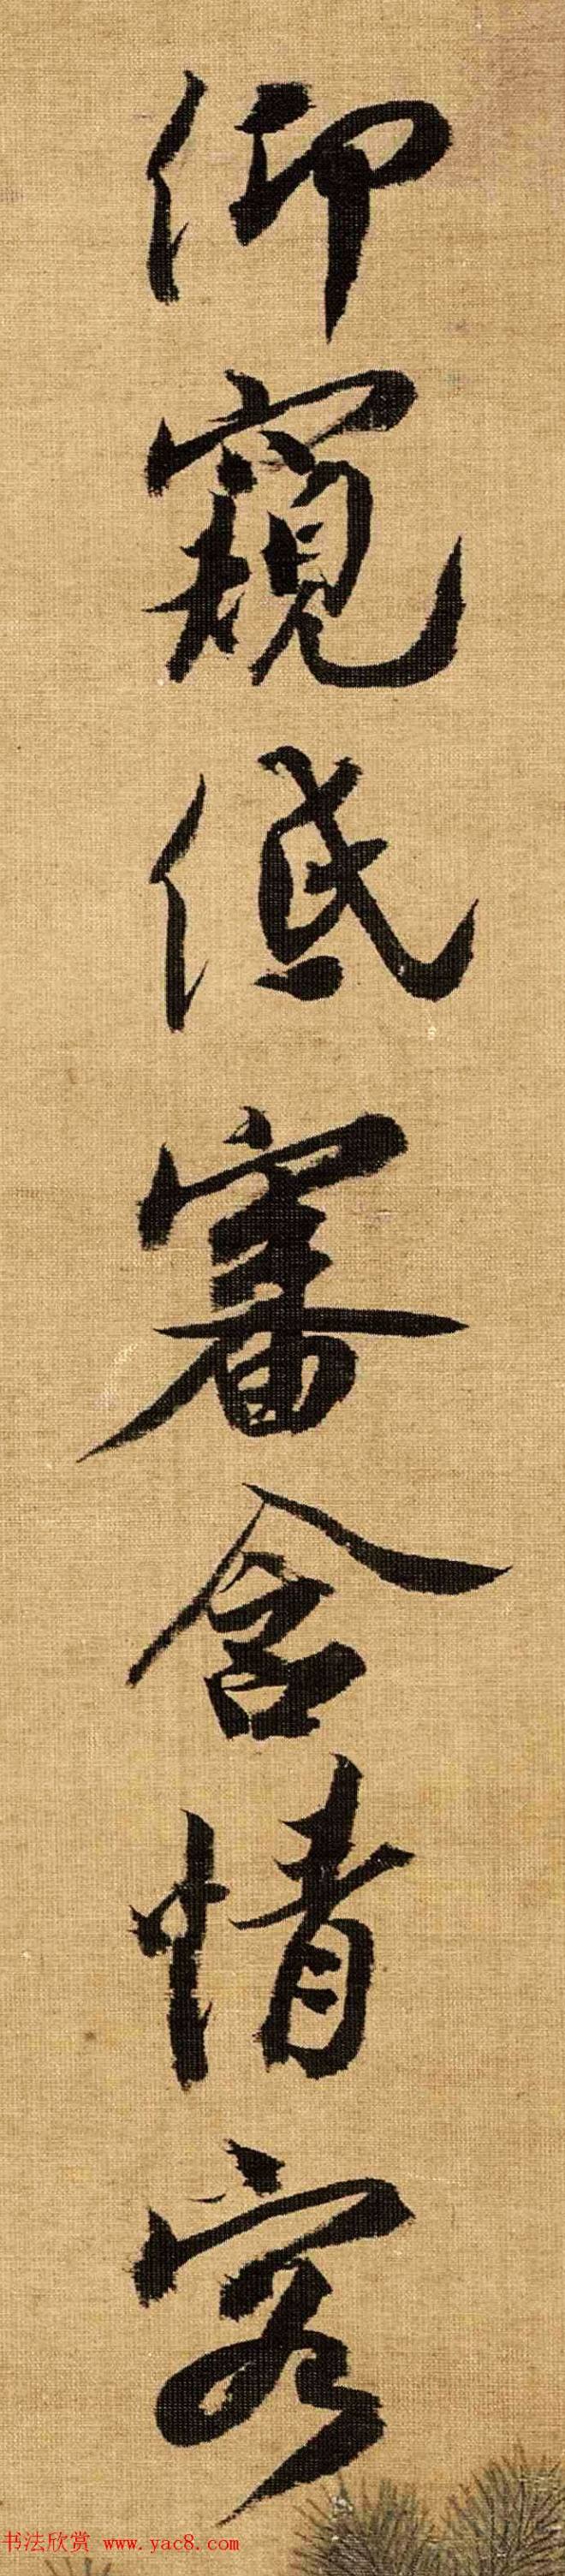 仰窺低審含情客
书法欣赏 www.yac8.com